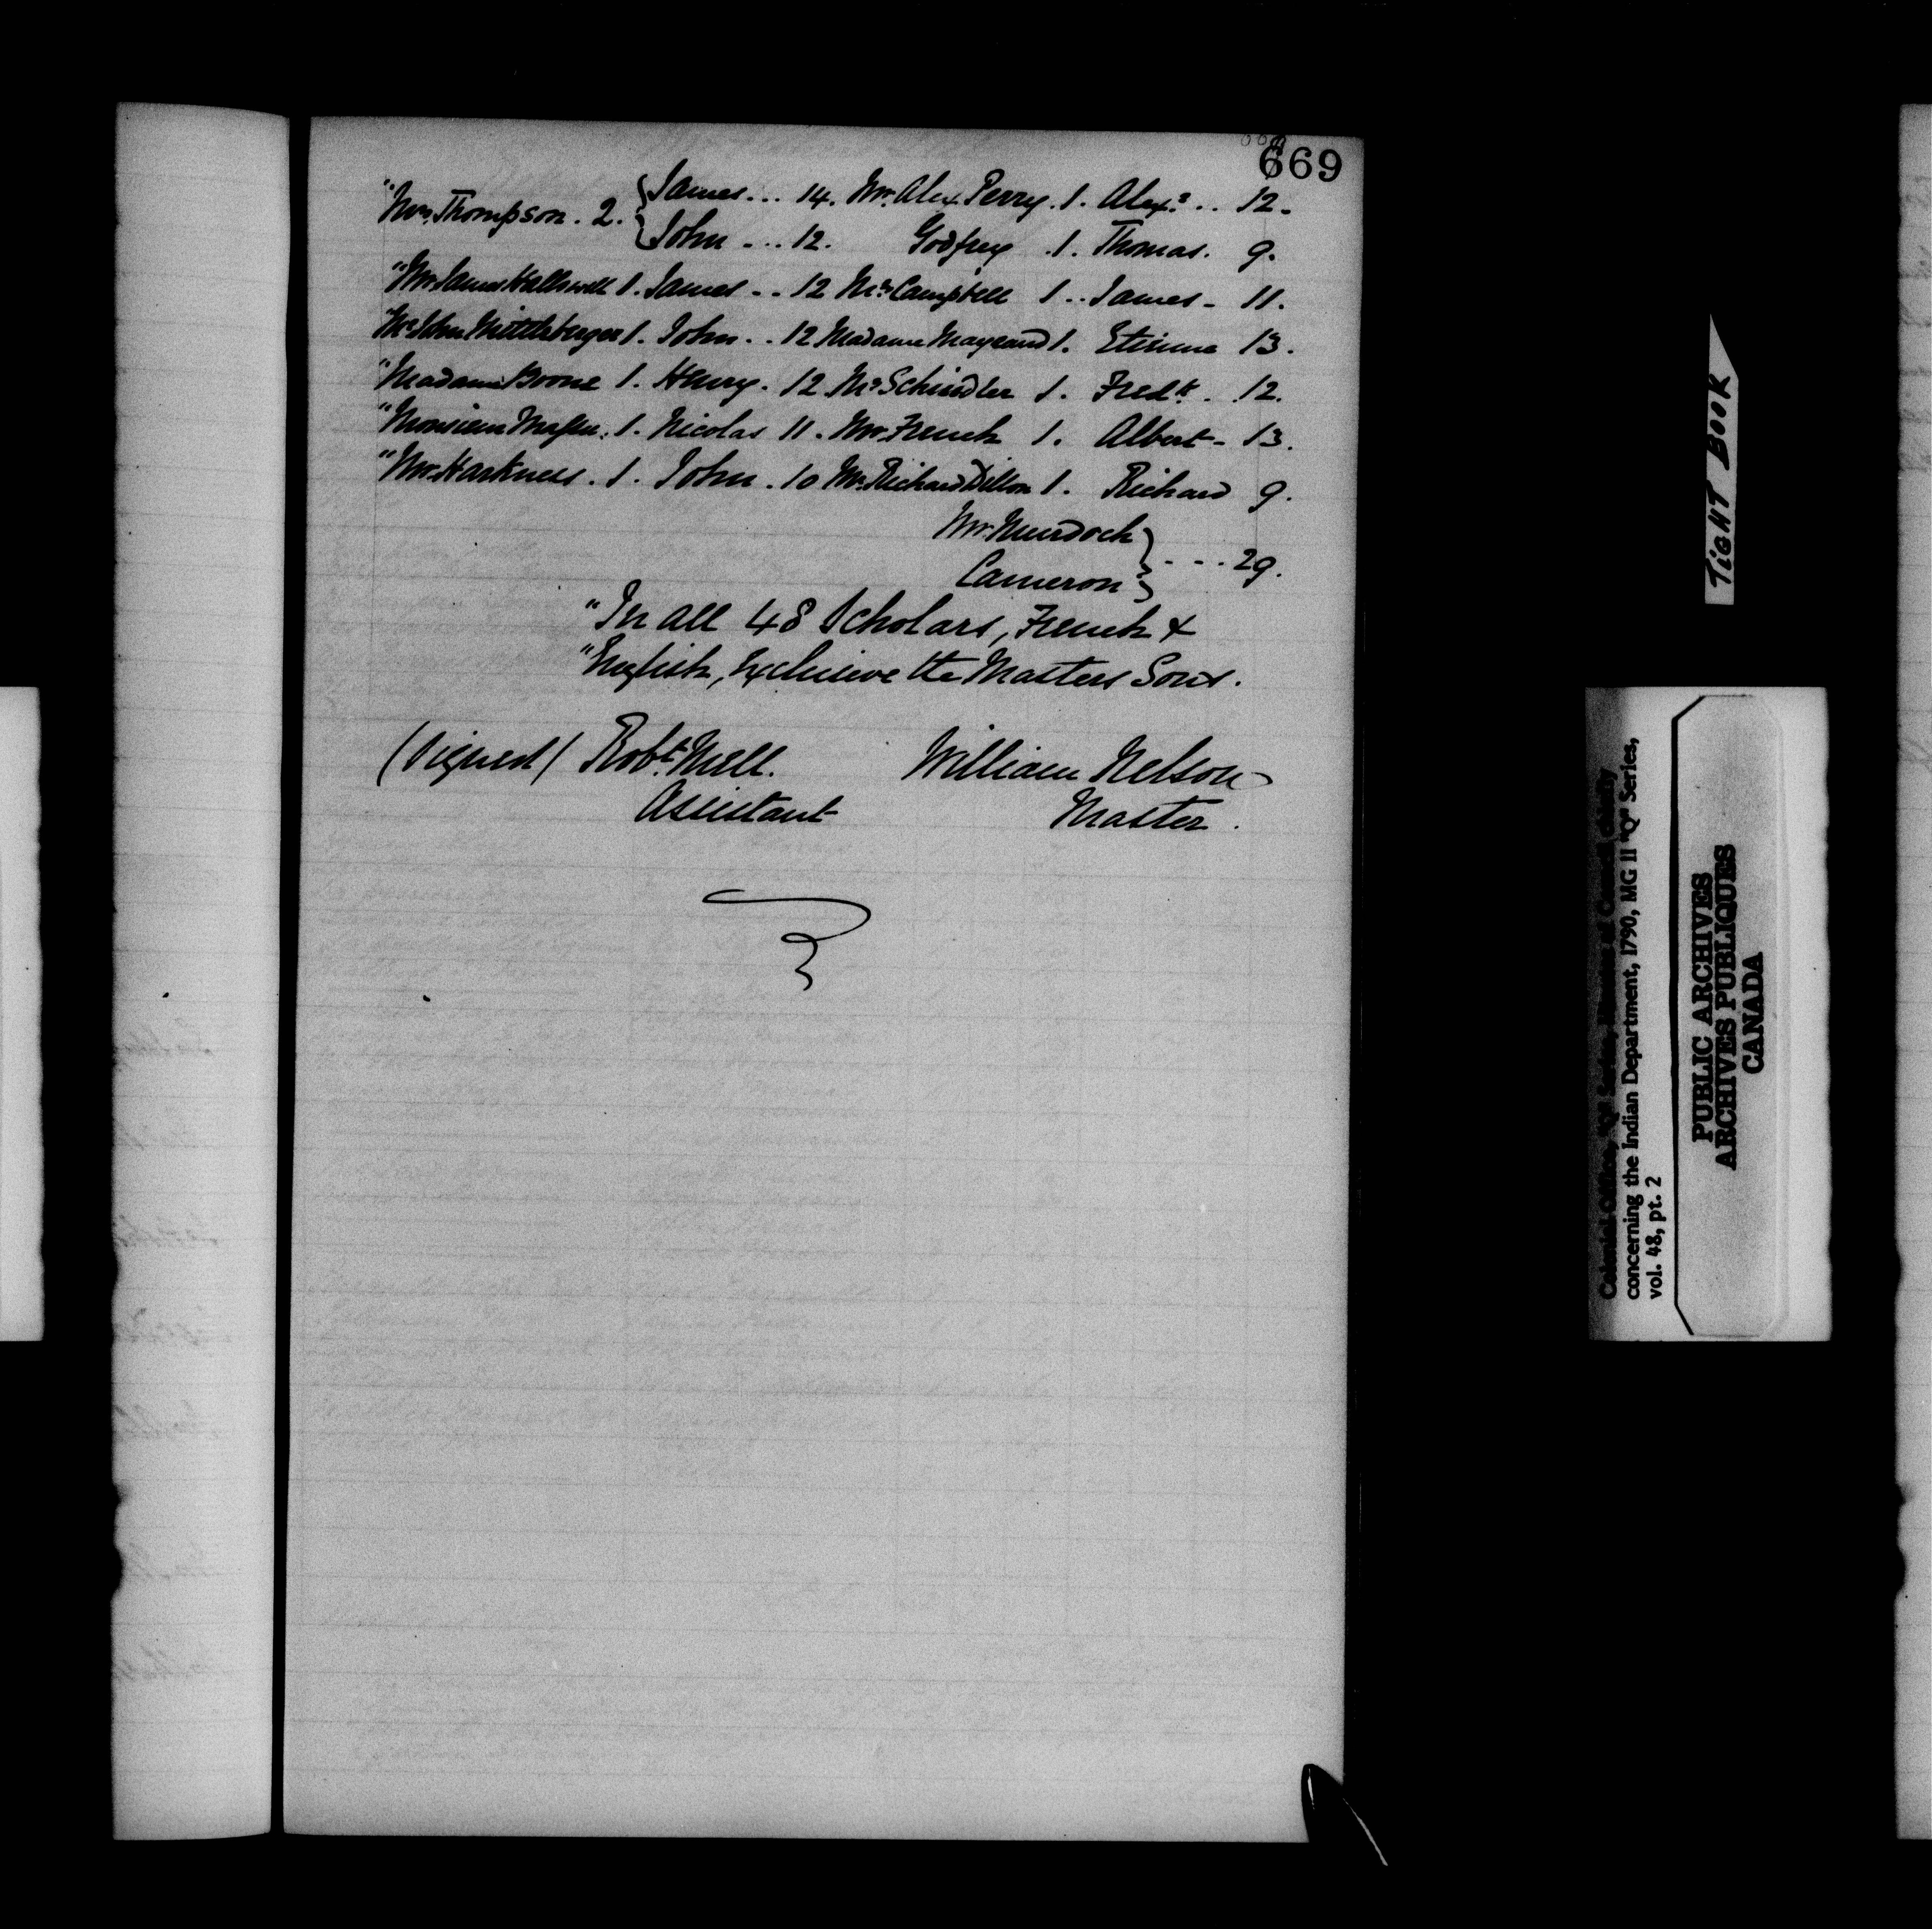 669
"Mrs. Thompson. 2. { James... 14. Mr. Alex Perry. 1. Alexr. .. 12.
{ John - .. 12. Godfrey . 1. Thomas. 9.
"Mr James Hallowell 1. James - - 12 Mr. Campbell 1 .. James - 11.
"Mr. John Mittleberger 1. John. . 12 Madame Mayrand 1. Etienne 13.
"Madame Boone 1. Henry. 12 Mr. Schindler 1. Fredk. . 12.
"Monsieur 1. Nicolas 11. Mr. French 1. Albert - 13.
"Mr. Harkness . 1. John . 10 Mr. Richard Dillon 1. Richard 9.
Mr. Murdoch
Cameron } - - - 29.
"In all 48 Scholars, French &
"English, Exclusive the Masters Sons.
(Signed) Robt. Nell. William Nelson
Assistant Master.
TIGHT BOOK
Colonial Office, "Q" Series, Minutes of Council chiefly
concerning the Indian Department, 1790, MG 11 "Q" Series,
vol. 48, pt. 2
PUBLIC ARCHIVES
ARCHIVES PUBLIQUES
CANADA